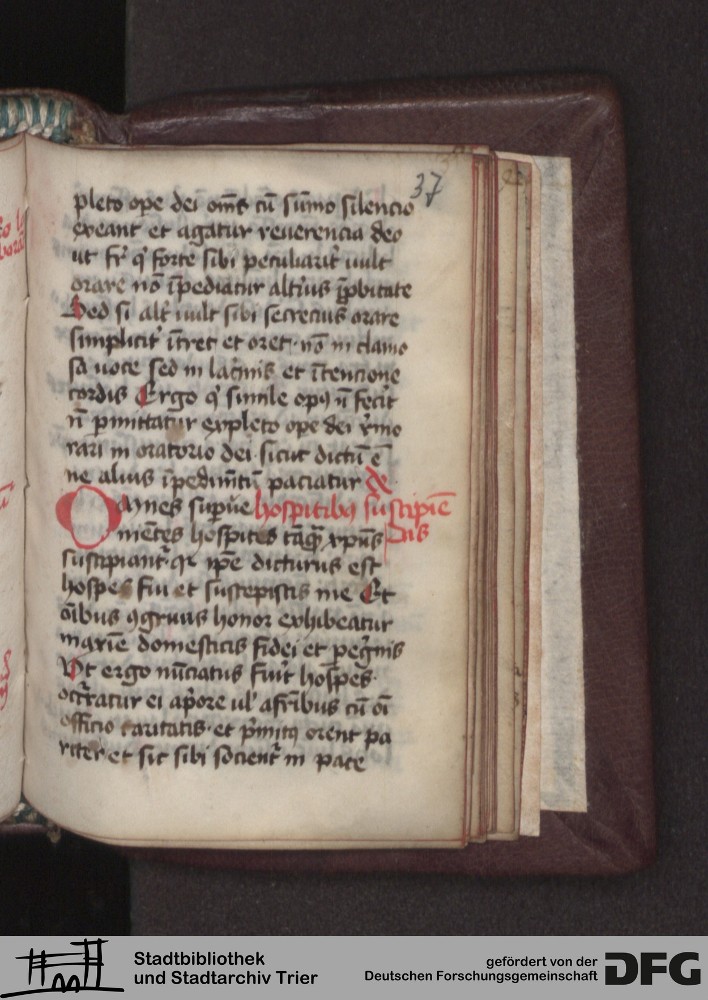 37
pleto ope dei om̄s cū sūmo silencio
exeant et agatur reuerencia deo
ut fr̄ q̇ forte sibi peculiarit͛ uult
orare nō īpediatur alt͛ius īprobitate
Sed si alt͛ uult sibi secrecius orare
simplicit͛ īt͛ret et oret· nō in clamo
sa uoce sed in lac͛mis et ītencione
cordis Ergo q̇ simile opꝰ n̄ fec͛it
n̄ p͛mittatur expleto ope dei r͛mo
rari in oratorio dei· sicut dictū ē
ne alius īpedim̄tū paciatur
Omnes sup͛ue hospitibꝰ suscipiē
nientes hospites tāq̄ xp̄us dis
suscipiant͛· q͛ ip̄e dicturus est
hospes fui et suscepistis me Et
oībus ꝯgruus honor exhibeatur
maxīe domesticis fidei et peg͛nis
Vt ergo nūciatus fu͛it hospes·
occ͛ratur ei ap͛ore ul' afr̄ibus cū oī
officio caritatis· et p͛mitꝰ orent pa
riter et sic sibi socient͛ in pace
Stadtbibliothek
und Stadtarchiv Trier
gefördert von der
Deutschen Forschungsgemeinschaft
DFG